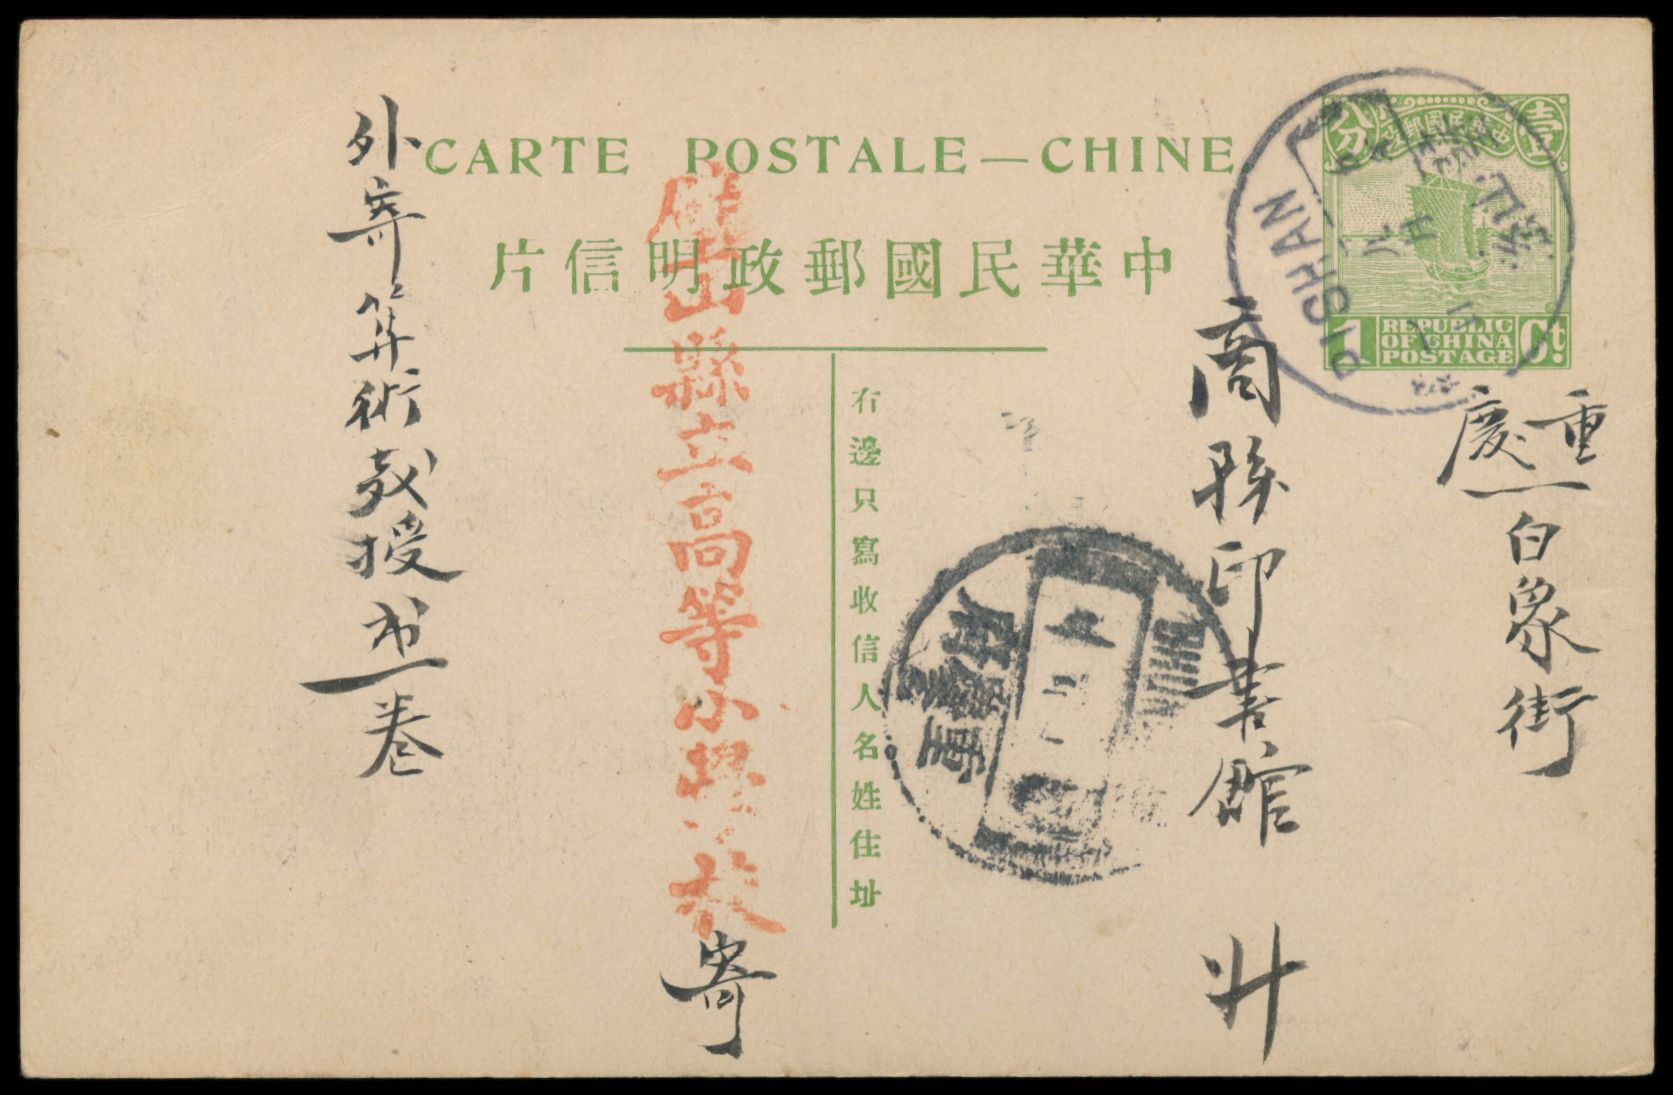 CARTE POSTALE—CHINE
中華民國郵政明信片
中華民國郵政
壹分
1 Ct.
REPUBLIC
OF CHINA
POSTAGE
PISHAN
重慶白象街
商務印書館 升
右邊只寫收信人名姓住址
璧山縣立高等小學校
寄
外寄算術教授书一卷